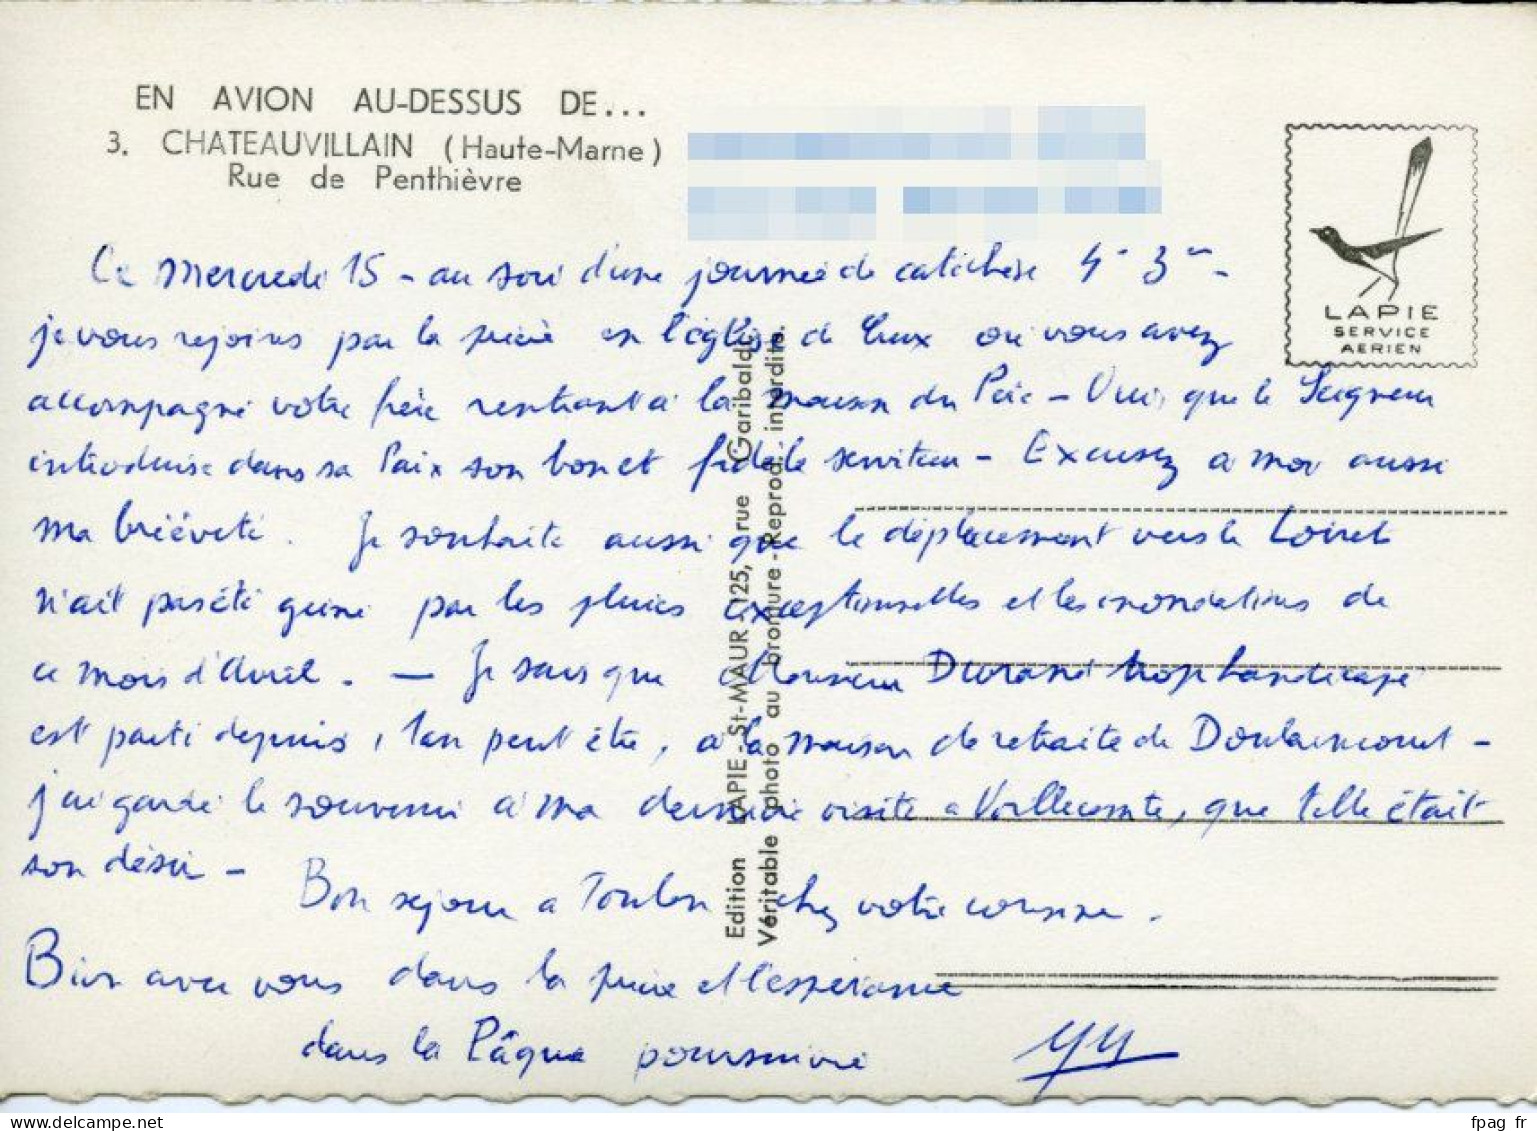 EN AVION AU-DESSUS DE...
3. CHATEAUVILLAIN (Haute-Marne)
Rue de Penthièvre
LAPIE
SERVICE
AERIEN
Ce Mercredi 15 - au soir d'une journée de catéchèse 4e 3e -
je vous rejoins par la prière en l'église de Creux où vous avez
accompagné votre frère rentrant à la maison du Père - que le Seigneur
introduise dans sa Paix son bon et fidèle serviteur - Excusez à moi aussi
ma brièveté. Je souhaite aussi que le déplacement vers le Loiret
n'ait pas été gêné par les pluies exceptionnelles et les inondations de
ce mois d'Avril. - Je sais que Monsieur Durand trop handicapé
est parti depuis 1 an peut être, à la maison de retraite de Doulaincourt -
j'ai gardé le souvenir à ma dernière visite à Vaillecomte, que telle était
son désir -
Bon séjour à Toulon chez votre cousine.
Bien avec vous dans la prière et l'espérance
dans la Pâque poursuivie
Edition LAPIE - St-MAUR, 125, rue Garibaldi.
Véritable photo au bromure - Reprod. interdite.
fpag_fr